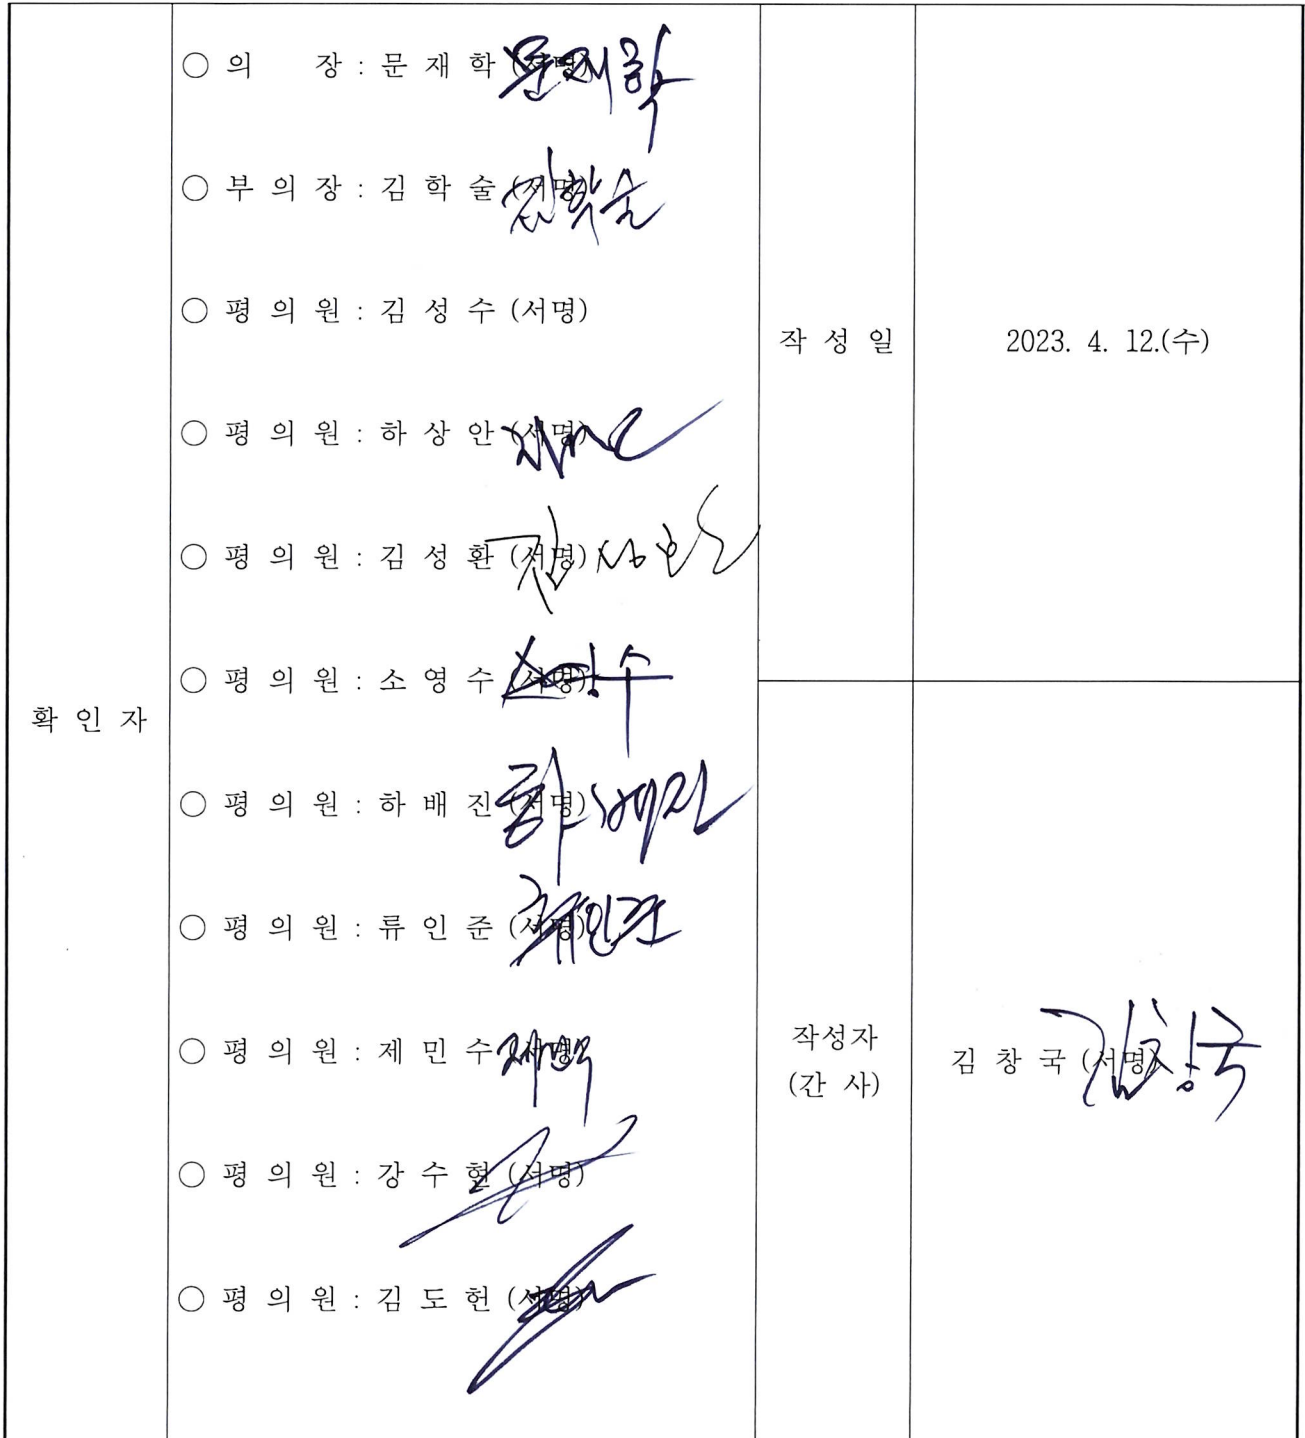 확 인 자
○ 의 장 : 문 재 학 (서명) 문재학
○ 부 의 장 : 김 학 술 (서명) 김학술
○ 평 의 원 : 김 성 수 (서명)
○ 평 의 원 : 하 상 안 (서명)
○ 평 의 원 : 김 성 환 (서명) 김성환
○ 평 의 원 : 소 영 수 (서명) 소영수
○ 평 의 원 : 하 배 진 (서명) 하배진
○ 평 의 원 : 류 인 준 (서명) 류인준
○ 평 의 원 : 제 민 수 (서명) 제민수
○ 평 의 원 : 강 수 현 (서명)
○ 평 의 원 : 김 도 헌 (서명)
작 성 일
2023. 4. 12.(수)
작성자
(간 사)
김 창 국 (서명) 김창국